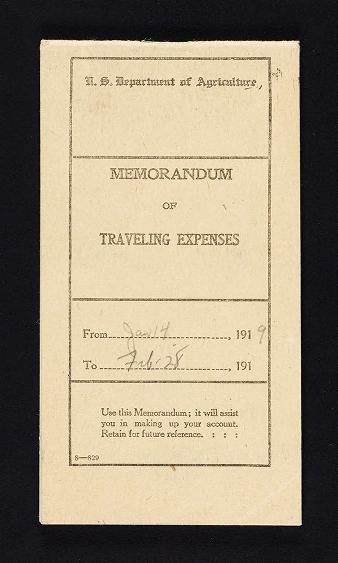 U. S. Department of Agriculture,
MEMORANDUM
OF
TRAVELING EXPENSES
From Jan 14, 1919
To Feb. 28, 191
Use this Memorandum; it will assist
you in making up your account.
Retain for future reference. : : :
8—829